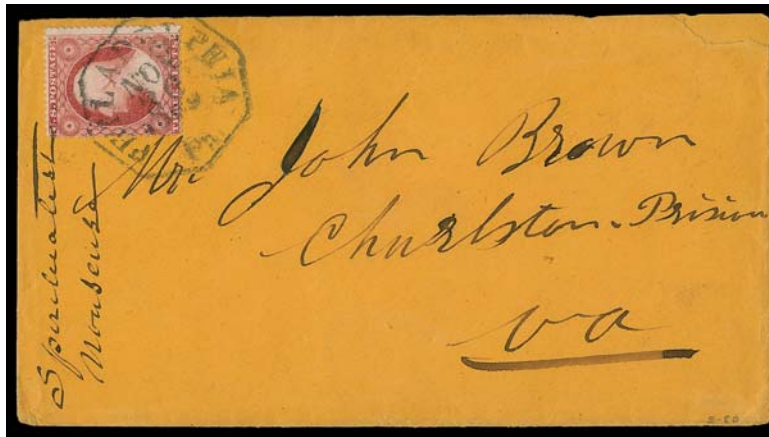 U.S. POSTAGE
PHILADELPHIA
NO
Pa
Mr. John Brown
Charlston. Prison
Va
Spiritualist
Nonsense